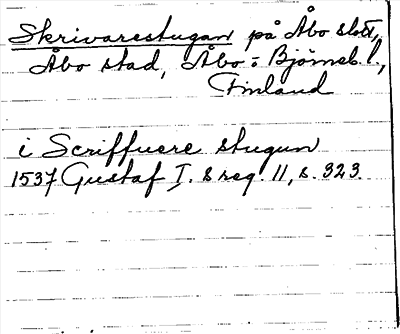 Skrivarestugan på Åbo slott,
Åbo stad, Åbo o Björneb. l.,
Finland
i Scriffuere stugun
1537 Gustaf I. s reg. 11, s. 323.